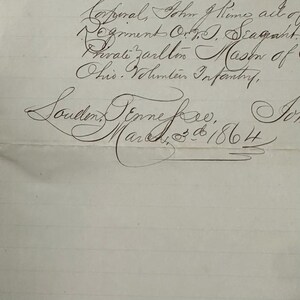 Corporal, John J Rime, act o
Regiment O. V. I, Seagant
Private Carlton Mason of
Ohio. Volunteer Infantry.
Louden, Tennessee. Jo
March, 3d 1864